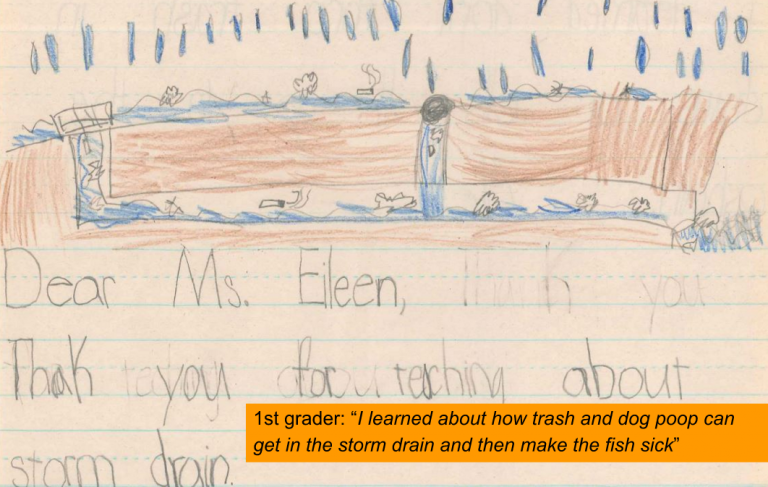 Dear Ms. Eileen, Thank you
Thank you for teaching about
1st grader: “I learned about how trash and dog poop can
get in the storm drain and then make the fish sick”
storm drain.